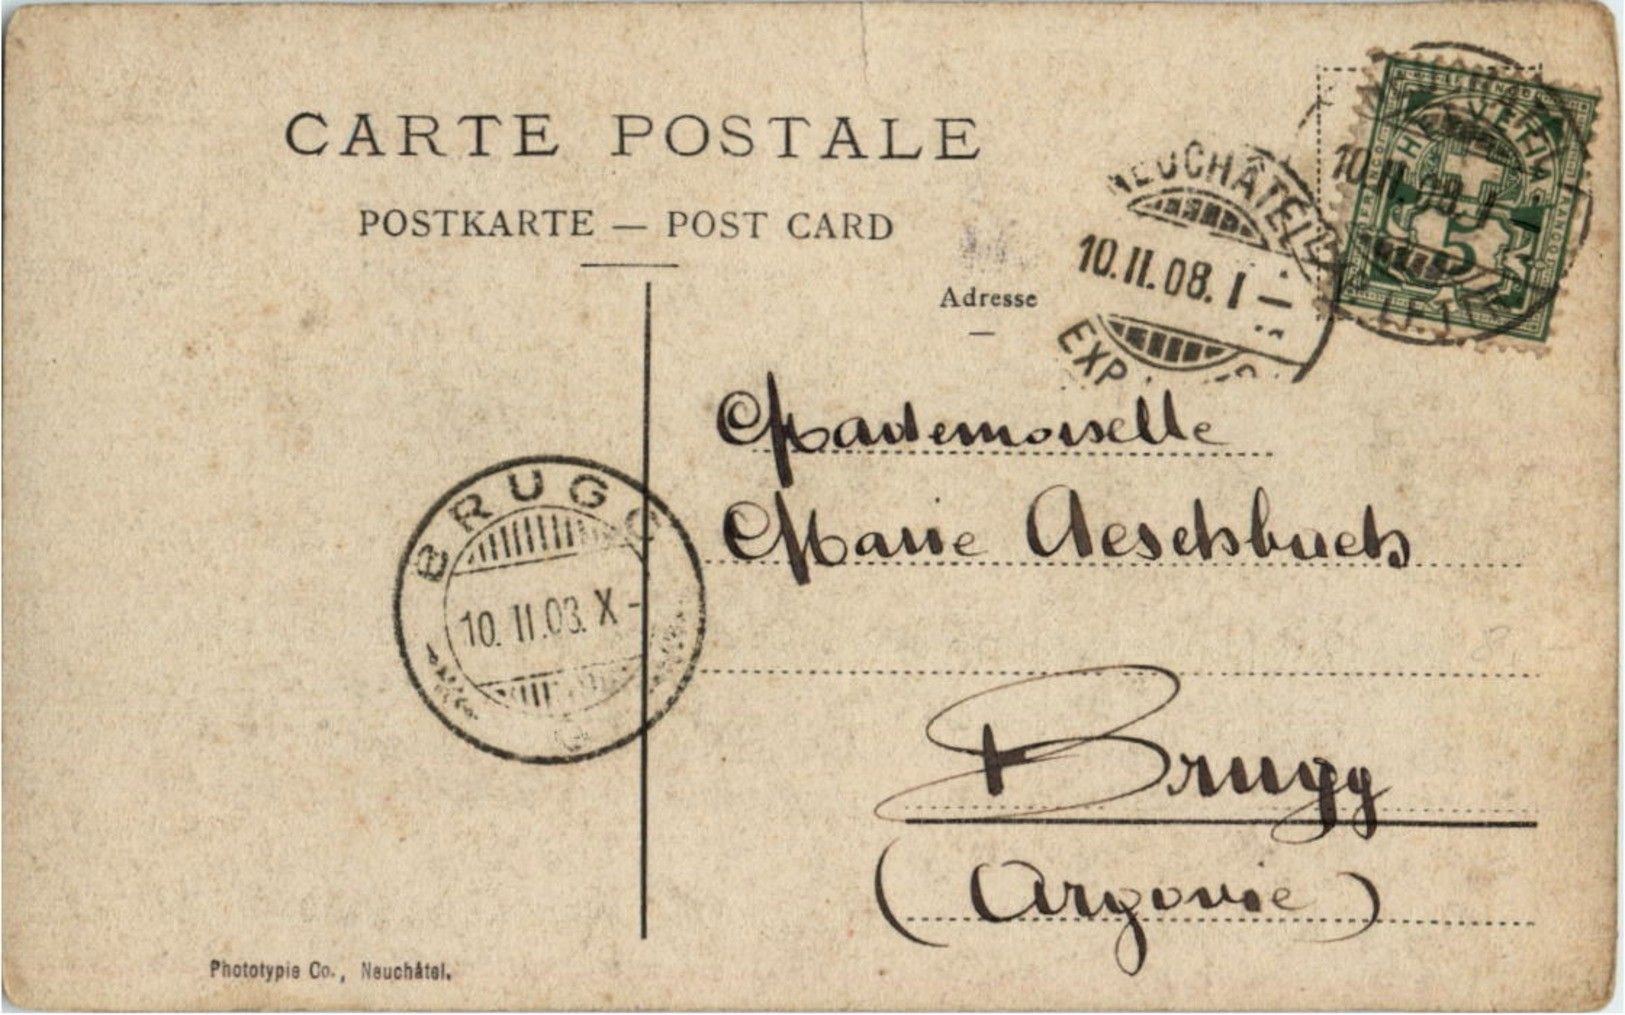 CARTE POSTALE
POSTKARTE — POST CARD
Adresse
NEUCHÂTEL
10.II.08.I —
EXP
10.II.08.I
HELVETIA
5
Mademoiselle
Marie Aeschbach
BRUGG
10.II.08.X-
Brugg
(Argovie)
Phototypie Co., Neuchâtel.